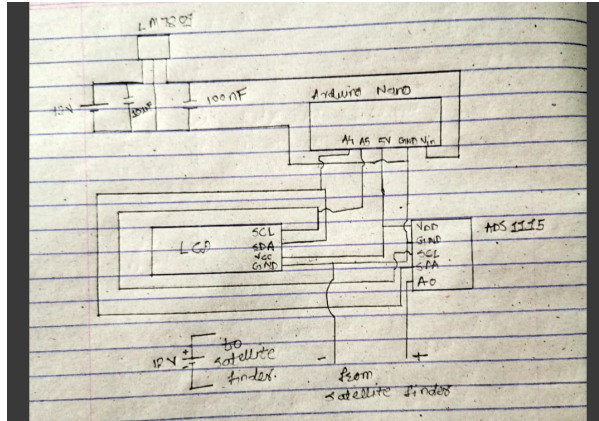 LM7809
12V
10uF
100nF
Arduino Nano
A4 A5 5V GND Vin
LCD
SCL
SDA
VCC
GND
VDD
GND
SCL
SDA
A0
ADS 1115
12V
to
satellite
finder.
- +
from
satellite finder